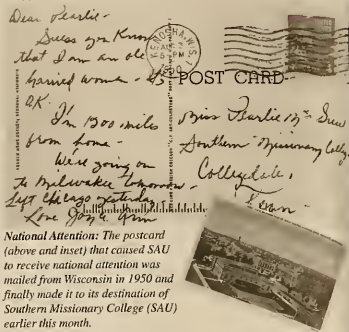 Dear Pearlie-
Guess you know
that I am an old
married woman - It's
OK.
I'm 1200 miles
from home -
We're going on
to Milwaukee tomorrow -
Left Chicago yesterday
Love Joy &
KENOSHA, WIS. 1
PM
1950
POST CARD
Miss Pearlie Mc
Southern Missionary College
Collegedale,
Tenn
National Attention: The postcard
(above and inset) that caused SAU
to receive national attention was
mailed from Wisconsin in 1950 and
finally made it to its destination of
Southern Missionary College (SAU)
earlier this month.